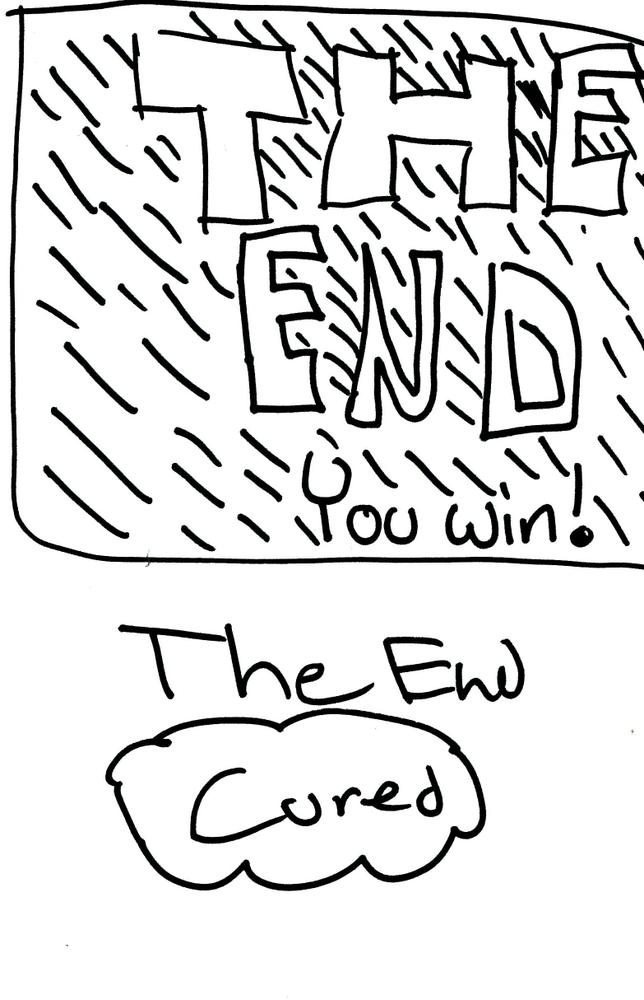 THE
END
You win!
The End
Cured